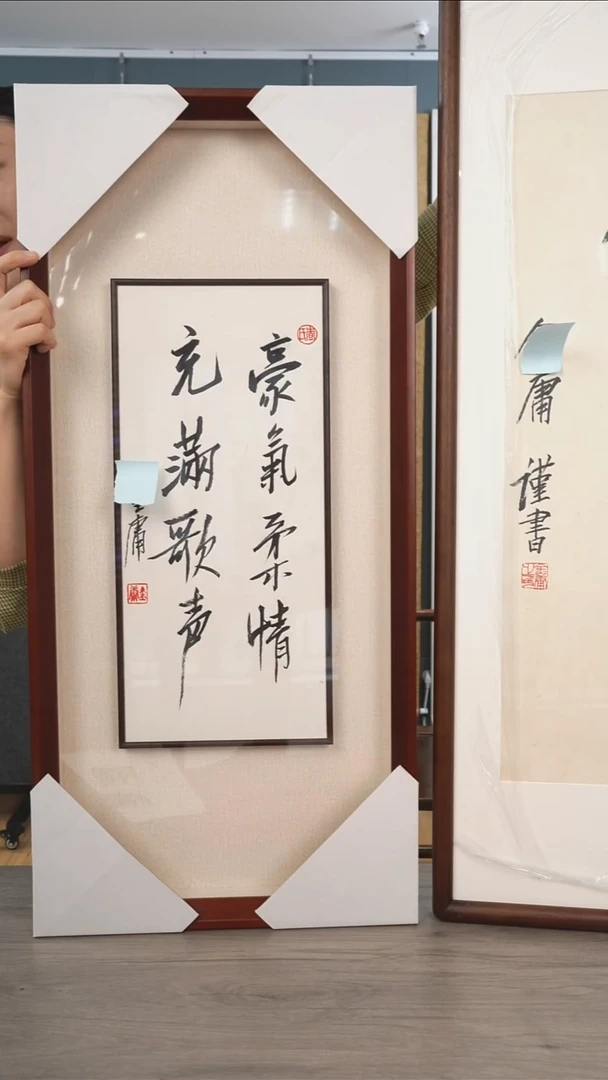 豪氣柔情
充滿歌声
庸
庸 谨書